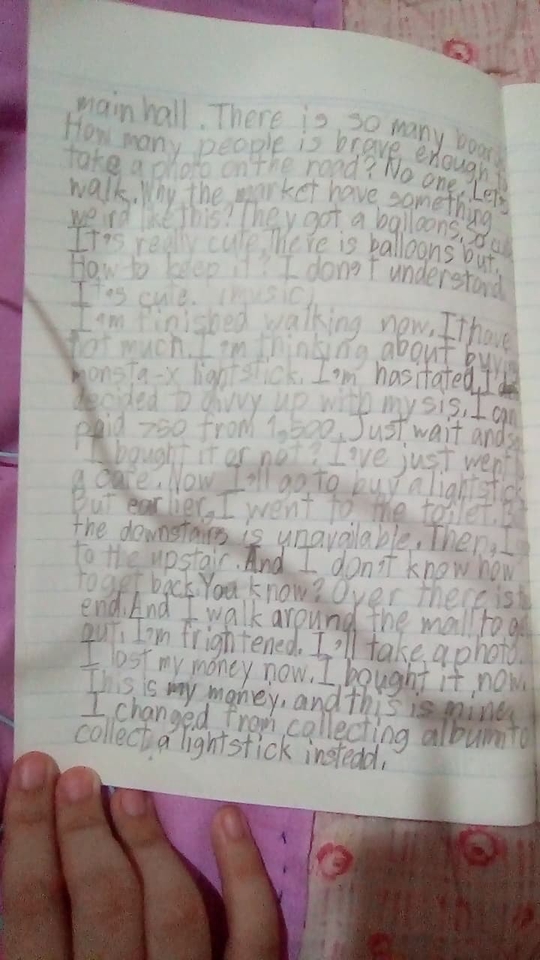 main hall. There is so many boar
How many people is brave enough to
take a photo on the road? No one. Let's
walk. Why the market have something
weird like this? They got a balloons, so cute
It's really cute, There is balloons but,
How to keep it? I don't understand
It's cute. (music)
I'm finished walking now. It have
not much. I'm thinking about buying
monsta-x lightstick. I'm hasitated. I
decided to divvy up with my sis. I can
paid 750 from 1,500. Just wait and see
I bought it or not? I've just went
a cafe. Now I'll go to buy a lightstick
But earlier, I went to the toilet. But
the downstairs is unavailable. Then, I
to the upstair. And I don't know how
to get back. You know? Over there is
end. And I walk around the mall to g
out. I'm frightened. I'll take a photo.
I lost my money now. I bought it now.
This is my money, and this is mine
I changed from collecting album to
collect a lightstick instedd.